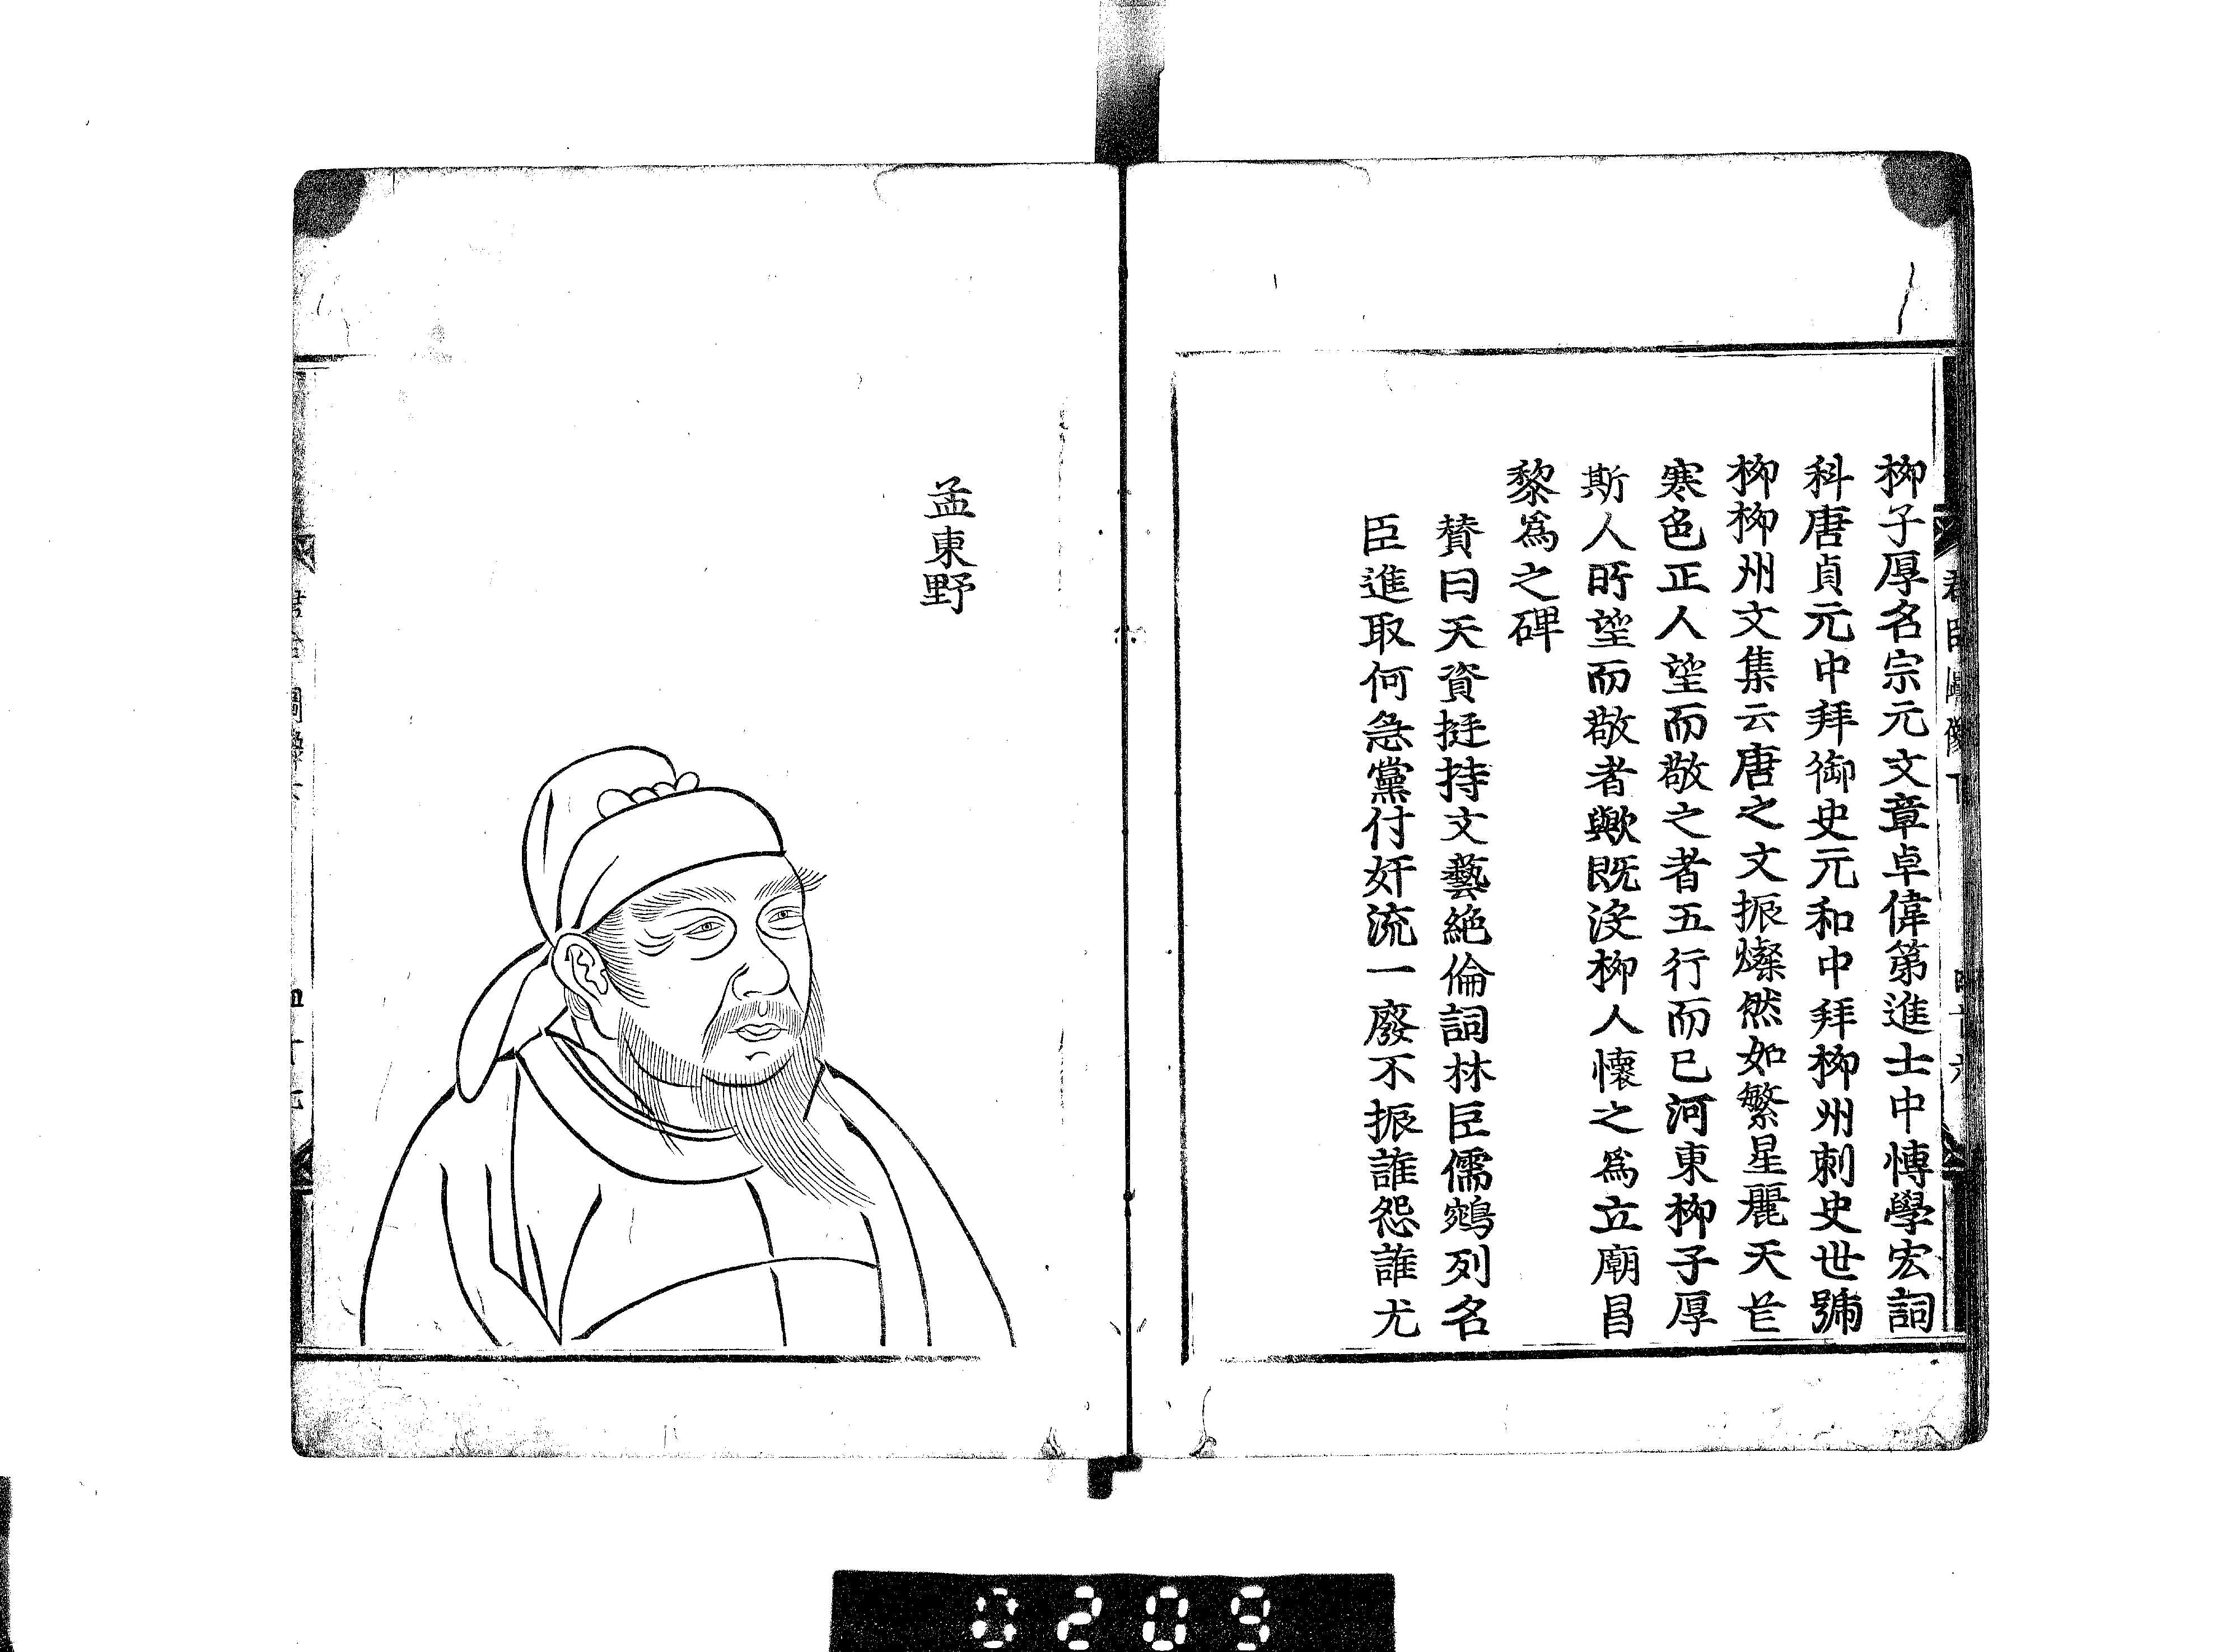 柳子厚名宗元文章卓偉第進士中博學宏詞
科唐貞元中拜御史元和中拜柳州刺史世號
柳柳州文集云唐之文振燦然如繁星麗天芒
寒色正人望而敬之者五行而已河東柳子厚
斯人望而敬者歟既沒柳人懷之為立廟昌
黎為之碑
贊曰天資挺持文藝絕倫詞林臣儒鵷列名
臣進取何急黨付奸流一廢不振誰怨誰尤
孟東野
0209